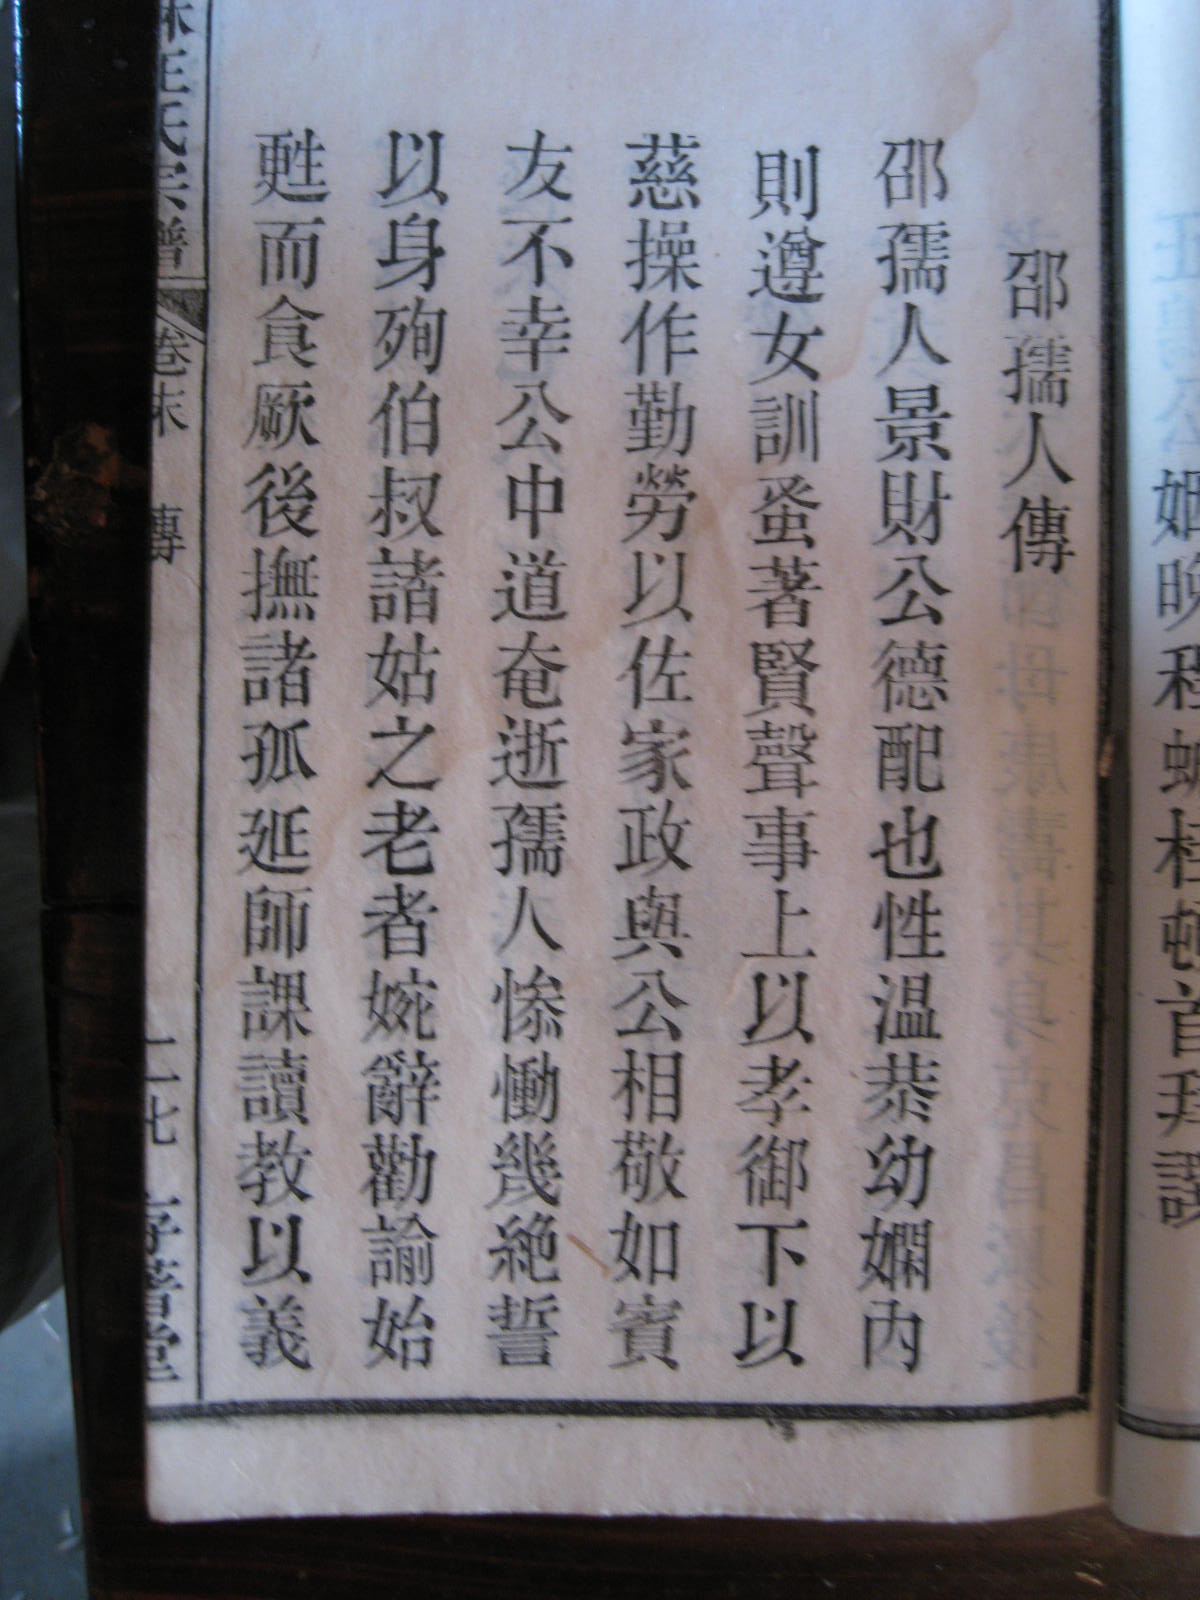 姻晚程
桂頓首拜
邵孺人傳
邵孺人景財公德配也性溫恭幼嫻內
則遵女訓蚤著賢聲事上以孝御下以
慈操作勤勞以佐家政與公相敬如賓
友不幸公中道奄逝孺人慘慟幾絕誓
以身殉伯叔諸姑之老者婉辭勸諭始
甦而食厥後撫諸孤延師課讀教以義
氏宗譜 卷末 傳